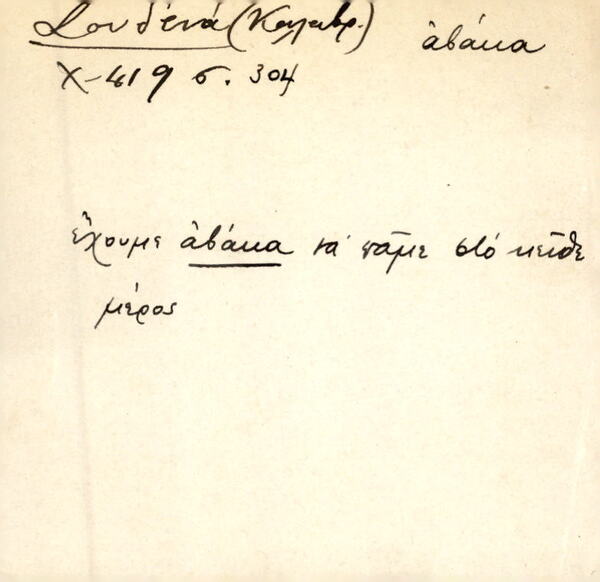 Σουδενά (Καλαβρ.) ἀβάκα
Χ-419 σ. 304
ἔχουμε ἀβάκα νά πᾶμε στό κεῖθε
μέρος